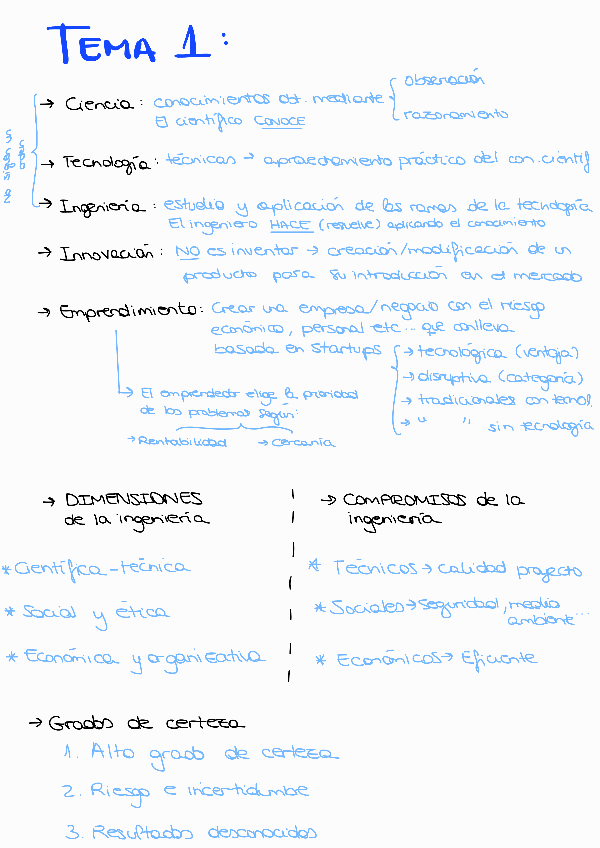 TEMA 1:
→ Ciencia: conocimientos obt. mediante
observación
razonamiento
El científico CONOCE
→ Tecnología: técnicas → aprovechamiento práctico del con. científ
→ Ingeniería: estudio y aplicación de las ramas de la tecnología
El ingeniero HACE (resuelve) aplicando el conocimiento
→ Innovación: NO es inventar → creación/modificación de un
producto para su introducción en el mercado
→ Emprendimiento: Crear una empresa/negocio con el riesgo
económico, personal etc... que conlleva
basada en Startups
→ tecnológica (ventaja)
→ disruptiva (categoría)
→ tradicionales con tecnol.
→ " " sin tecnología
→ El emprendedor elige la prioridad
de los problemas según:
→ Rentabilidad → Cercanía
→ DIMENSIONES
de la ingeniería
* Científica-técnica
* Social y ética
* Económica y organizativa
→ COMPROMISOS de la
ingeniería
* Técnicos → calidad proyecto
* Sociales → seguridad, medio
ambiente...
* Económicos → Eficiente
→ Grados de certeza
1. Alto grado de certeza
2. Riesgo e incertidumbre
3. Resultados desconocidos